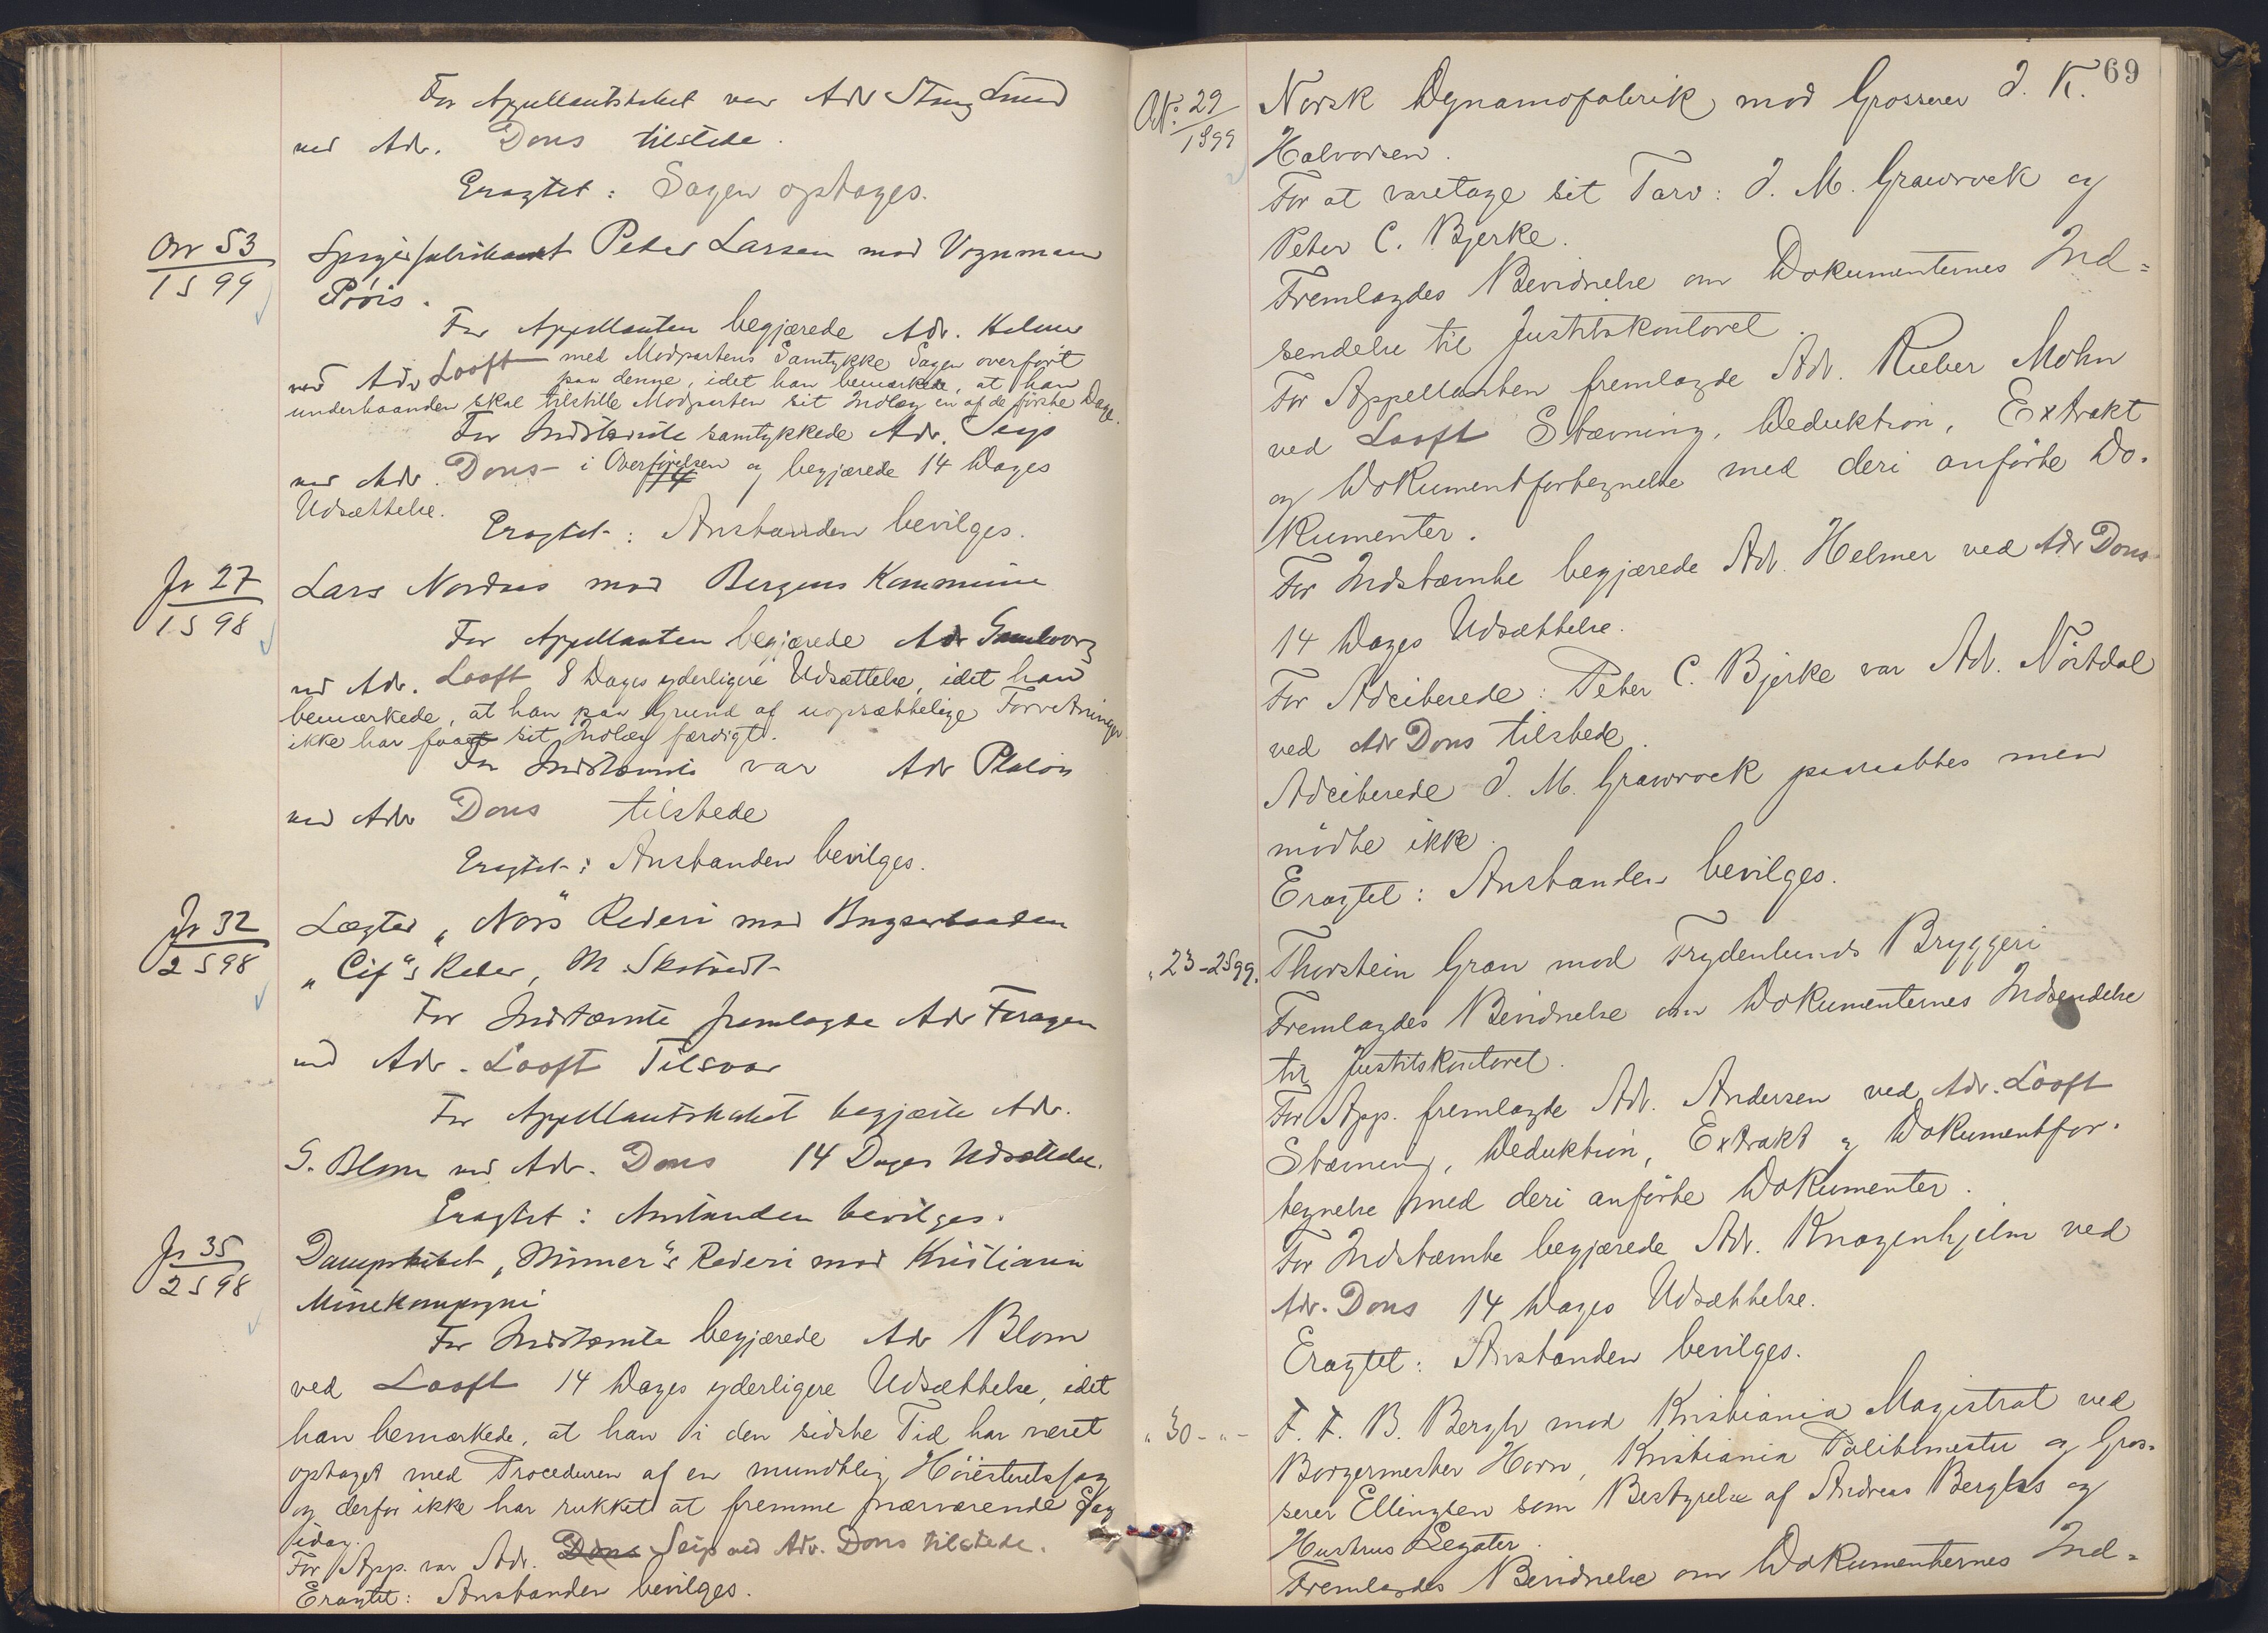 For Appellantskabet var Adv Stang Lund
ved Adv. Dons tilstede.
Eragtet: Sagen optages.
Or 53
1 S 99
Spigerfabrikant Peter Larsen mod Vognmand
Röis.
For Appellanten begjærede Adv. Helmer
ved Adv Looft med Modpartens Samtykke Sagen overfört
paa denne, idet han bemærkede, at han
underhaanden skal tilstille Modparten sit Indlæg en af de förste Dage.
For Indstævnte samtykkede Adv. Seip
ved Adv. Dons i Overförelsen og begjærede 14 Dages
Udsættelse.
Eragtet: Anstanden bevilges.
Fr 27
1 S 98
Lars Nordnes mod Bergens Kommune
For Appellanten begjærede Adv
ved Adv. Looft 8 Dages yderligere Udsættelse, idet han
bemærkede, at han paa Grund af uopsættelige Forretninger
ikke har faaet sit Indlæg færdigt.
For Indstævnte var Adv Platou
ved Adv Dons tilstede
Eragtet: Anstanden bevilges.
Fr 32
2 S 98
Lægter „Nor"s Rederi mod Bugserbaaden
„Cif"s Reder, M.
For Indstævnte fremlagde Adv
ved Adv. Looft Tilsvar
For Appellantskabet begjærte Adv.
G. Blom ved Adv. Dons 14 Dages Udsættelse.
Eragtet: Anstanden bevilges.
Fr 35
2 S 98
Dampskibet „Mimer"s Rederi mod Kristiania
Minekompagni
For Indstævnte begjærede Adv Blom
ved Looft 14 Dages yderligere Udsættelse, idet
han bemærkede, at han i den sidste Tid har været
optaget med Proceduren af en mundtlig Höiesteretssag
og derfor ikke har rukket at fremme nærværende Sag
idag.
For App. var Adv. Dons Seip ved Adv. Dons tilstede.
Eragtet: Anstanden bevilges.
69
Or. 29
1 S 99
Norsk Dynamofabrik mod Grosserer J. K.
Halvorsen.
For at varetage sit Tarv: J. M. Grawrock og
Peter C. Bjerke.
Fremlagdes Bevidnelse om Dokumenternes Ind=
sendelse til Justitskontoret.
For Appellanten fremlagde Adv. Rieber Mohn
ved Looft Stævning, Deduktion, Extrakt
og Dokumentfortegnelse med deri anförte Do-
kumenter.
For Indstævnte begjærede Adv. Helmer ved Adv Dons
14 Dages Udsættelse.
For Adciterede: Peter C. Bjerke var Adv. Nörtdal
ved Adv Dons tilstede.
Adciterede J. M. Grawrock paaraabtes men
mödte ikke.
Eragtet: Anstanden bevilges.
„ 23-2S99.
Thorstein Gran mod Frydenlunds Bryggeri
Fremlagdes Bevidnelse om Dokumenternes Indsendelse
til Justitskontoret.
For App. fremlagde Adv. Andersen ved Adv. Looft
Stævning, Deduktion, Extrakt og Dokumentfor-
tegnelse med deri anförte Dokumenter.
For Indstævnte begjærede Adv. Knagenhjelm ved
Adv. Dons 14 Dages Udsættelse.
Eragtet: Anstanden bevilges.
„ 30 - „ -
F. F. B. Bergh mod Kristiania Magistrat ved
Borgermester Horn, Kristiania Politimester og Gros-
serer Ellingsen som Bestyrelse af Andreas Berghs og
Hustrus Legater.
Fremlagdes Bevidnelse om Dokumenternes Ind=